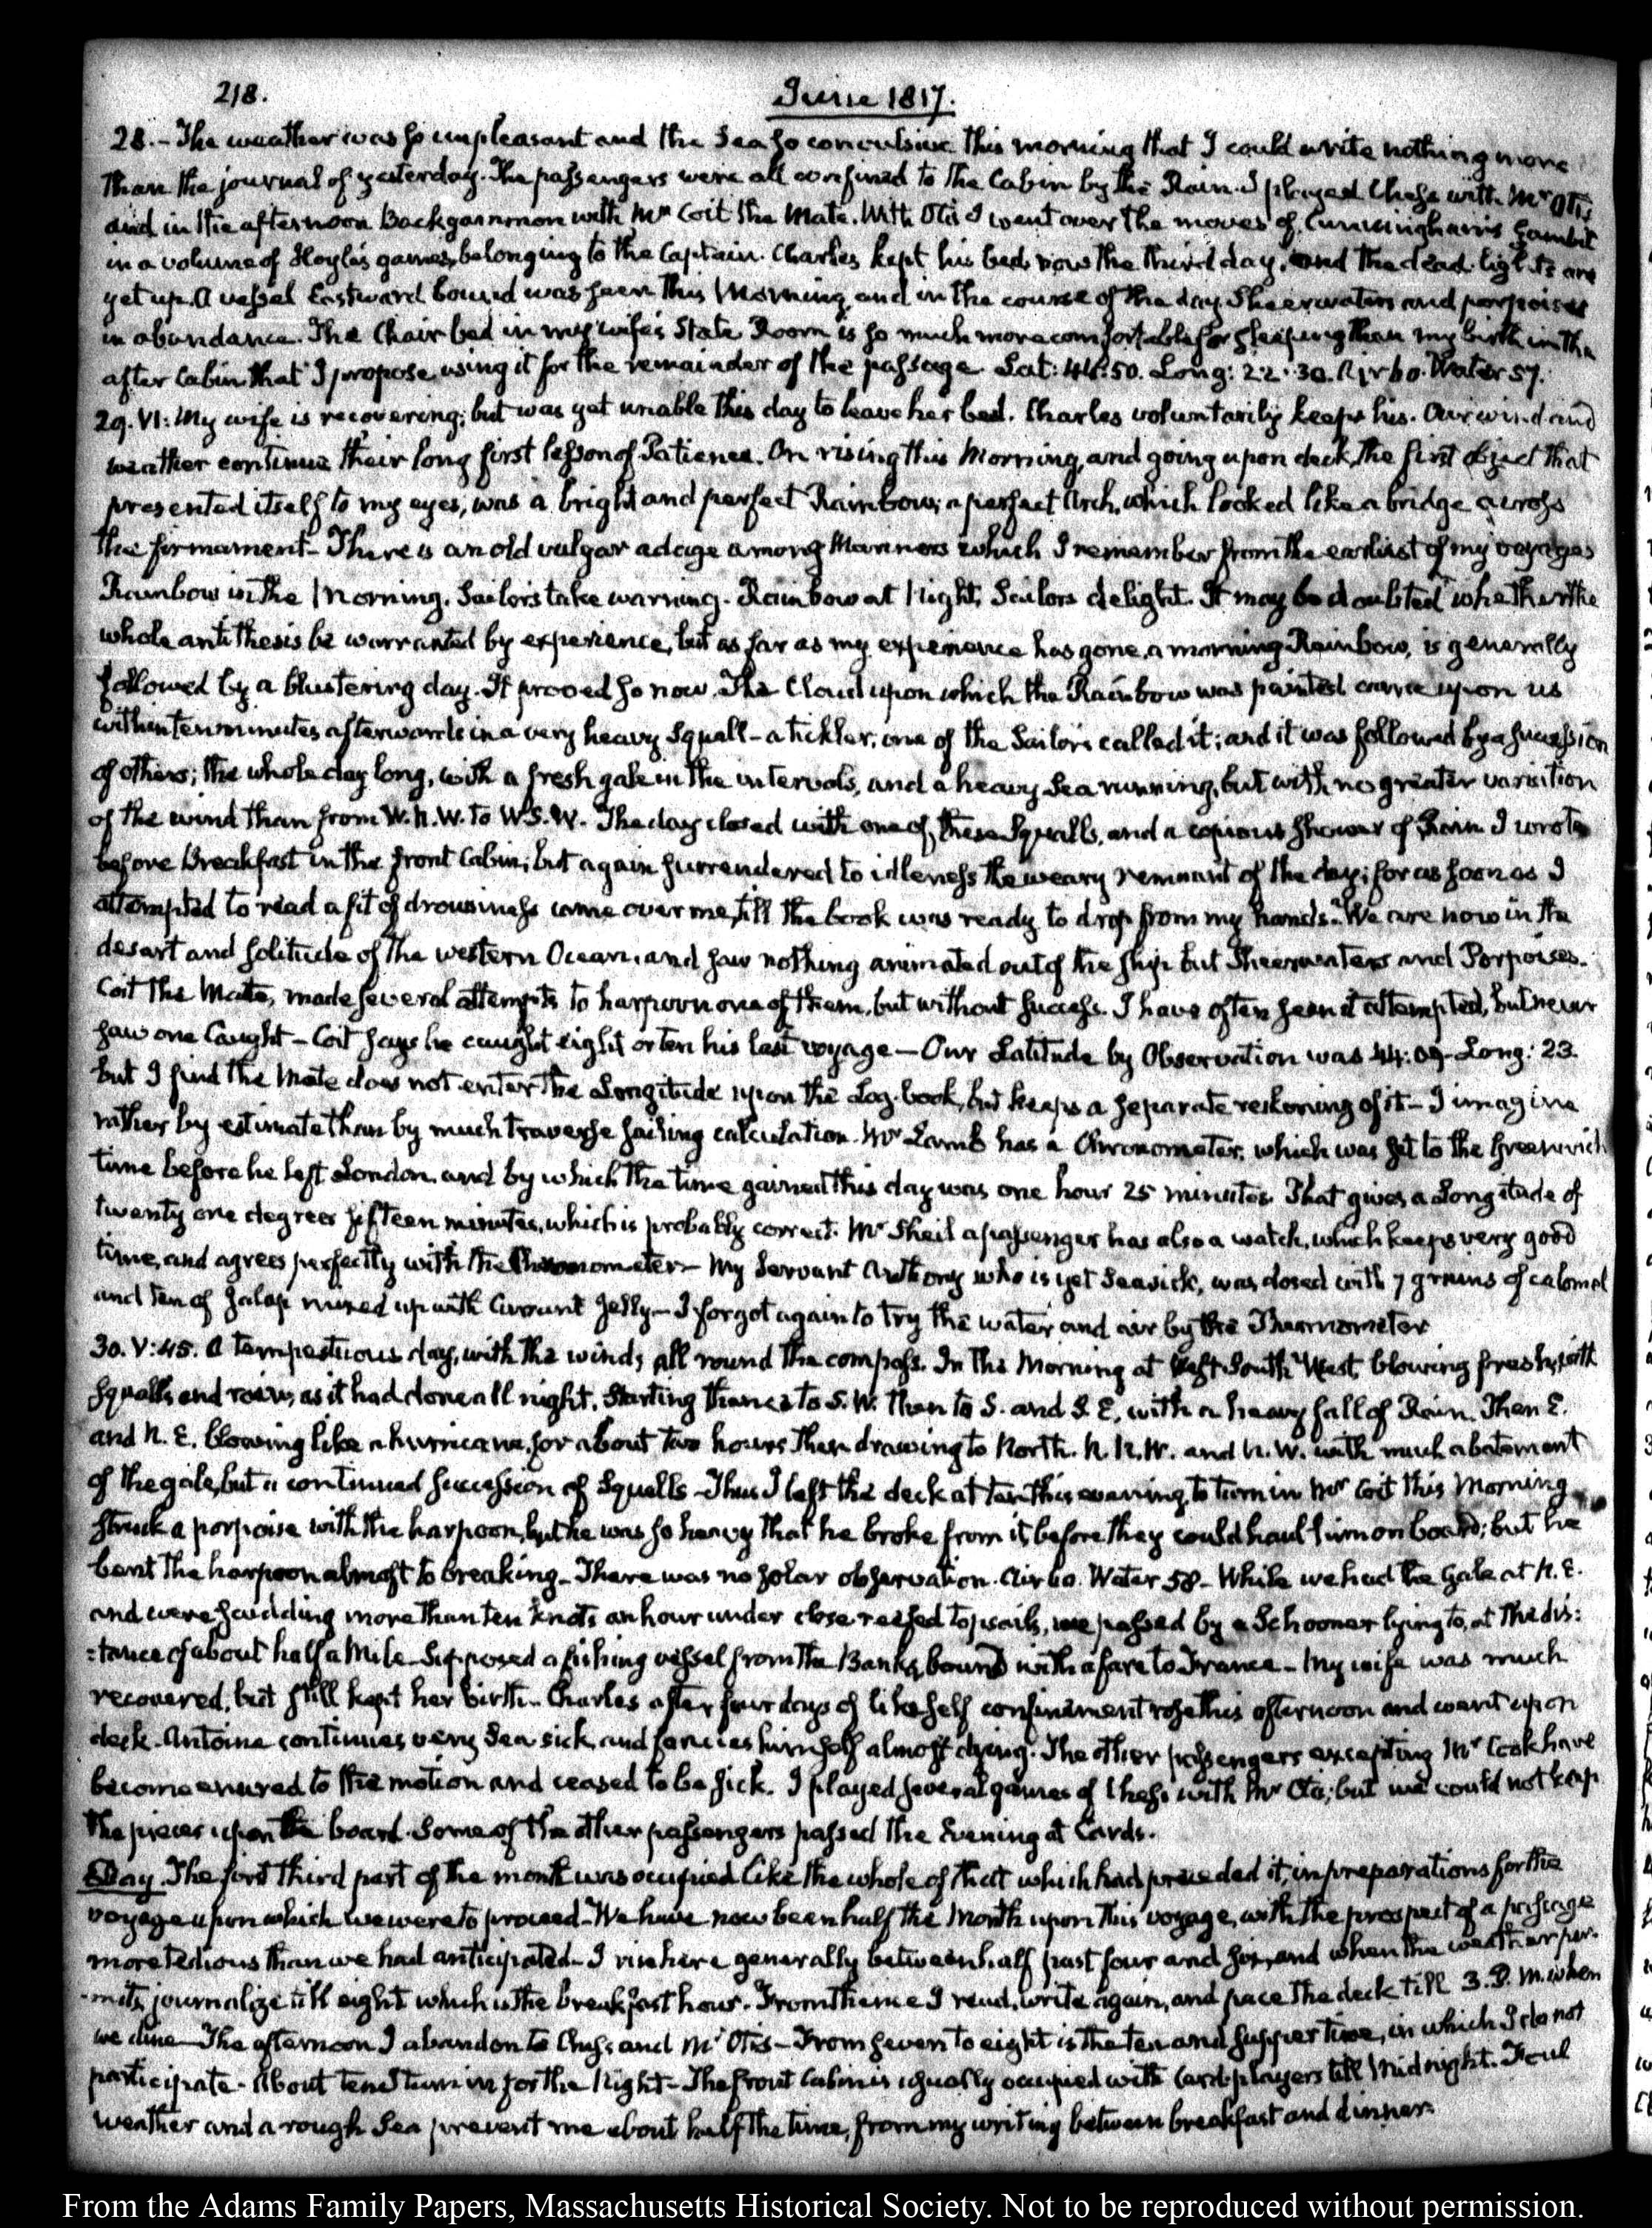 218.
June 1817.
28.- The weather was so unpleasant and the Sea so convulsive this morning that I could write nothing more
than the journal of yesterday. The passengers were all confined to the Cabin by the Rain. I played Chess with Mr Otis
and in the afternoon Backgammon with Mr Coit the Mate. With Otis I went over the moves of Cunningham's Gambit
in a volume of Hoyle's games, belonging to the Captain. Charles kept his bed, now the third day, and the dead-lights are
yet up. A vessel Eastward bound was seen this Morning, and in the course of the day Sheerwaters and porpoises
in abundance. The Chair bed in my wife's State Room is so much more comfortable for sleeping than my birth in the
after Cabin that I propose using it for the remainder of the passage. Lat: 44:50. Long: 22.30. Air 60. Water 57.
29. VI: My wife is recovering; but was yet unable this day to leave her bed. Charles voluntarily keeps his. Our wind and
weather continue their long first lesson of Patience. On rising this Morning, and going upon deck, the first object that
presented itself to my eyes, was a bright and perfect Rainbow; a perfect Arch, which looked like a bridge across
the firmament- There is an old vulgar adage among Mariners which I remember from the earliest of my voyages
Rainbow in the Morning, Sailors take warning- Rainbow at Night, Sailors delight. It may be doubted whether the
whole antithesis be warranted by experience, but as far as my experience has gone, a morning Rainbow, is generally
followed by a blustering day. It proved so now. The Cloud upon which the Rainbow was painted came upon us
within ten minutes afterwards in a very heavy Squall- a tickler, one of the Sailors called it; and it was followed by a succession
of others; the whole day long, with a fresh gale in the intervals, and a heavy Sea running, but with no greater variation
of the wind than from W.N.W. to W.S.W. The day closed with one of these Squalls, and a copious shower of Rain. I wrote
before Breakfast in the front Cabin; but again surrendered to idleness the weary remnant of the day; for as soon as I
attempted to read a fit of drowsiness came over me, till the book was ready to drop from my hands. We are now in the
desart and solitude of the western Ocean, and saw nothing animated out of the ship but Sheerwaters and Porpoises.
Coit the Mate, made several attempts to harpoon one of them, but without success. I have often seen it attempted, but never
saw one Caught- Coit says he caught eight or ten his last voyage- Our Latitude by Observation was 44:09- Long: 23.
but I find the Mate does not enter the Longitude upon the Log-book, but keeps a separate reckoning of it- I imagine
rather by estimate than by much traverse sailing calculation. Mr Lamb has a Chronometer, which was set to the Greenwich
time before he left London, and by which the time gained this day was one hour 25 minutes. That gives a Longitude of
twenty one degrees fifteen minutes, which is probably correct. Mr Sheil a passenger has also a watch, which keeps very good
time, and agrees perfectly with the Chronometer- My Servant Anthony who is yet Seasick, was dosed with 7 grains of calomel
and ten of jalap mixed up with Currant Jelly- I forgot again to try the water and air by the Thermometer
30. V:45. A tempestuous day, with the winds all round the compass. In the Morning at West South West, blowing fresh, with
Squalls and rain, as it had done all night. Starting thence to S.W. then to S. and S.E, with a heavy fall of Rain. Then E.
and N.E. blowing like a hurricane, for about two hours then drawing to North. N.N.W. and N.W. with much abatement
of the gale, but a continued succession of Squalls- Thus I left the deck at ten this evening, to turn in. Mr Coit this Morning
struck a porpoise with the harpoon, but he was so heavy that he broke from it before they could haul him on board; but he
bent the harpoon almost to breaking- There was no solar observation. Air 60. Water 58- While we had the Gale at N.E.
and were scudding more than ten knots an hour under close reefed topsails, we passed by a Schooner lying to, at the dis:
:tance of about half a Mile- Supposed a fishing vessel from the Banks, bound with a fare to France- My wife was much
recovered, but still kept her birth- Charles after four days of like self confinement rose this afternoon and went upon
deck. Antoine continues very Sea sick, and fancies himself almost dying. The other passengers excepting Mr Cook have
become enured to the motion and ceased to be sick. I played several games of Chess with Mr Otis; but we could not keep
the pieces upon the board. Some of the other passengers passed the Evening at Cards.
Day. The first third part of the month was occupied like the whole of that which had preceded it, in preparations for the
voyage upon which we were to proceed- We have now been half the Month upon this voyage, with the prospect of a passage
more tedious than we had anticipated- I rise here generally between half past four and six, and when the weather per-
-mits, journalize till eight which is the breakfast hour. From thence I read, write again, and pace the deck till 3. P.M. when
we dine- The afternoon I abandon to Chess and Mr Otis- From seven to eight is the tea and supper time, in which I do not
participate- About ten I turn in for the Night- The front Cabin is usually occupied with Card-players till Midnight. Foul
weather and a rough Sea prevent me about half the time, from my writing between breakfast and dinner.
From the Adams Family Papers, Massachusetts Historical Society. Not to be reproduced without permission.